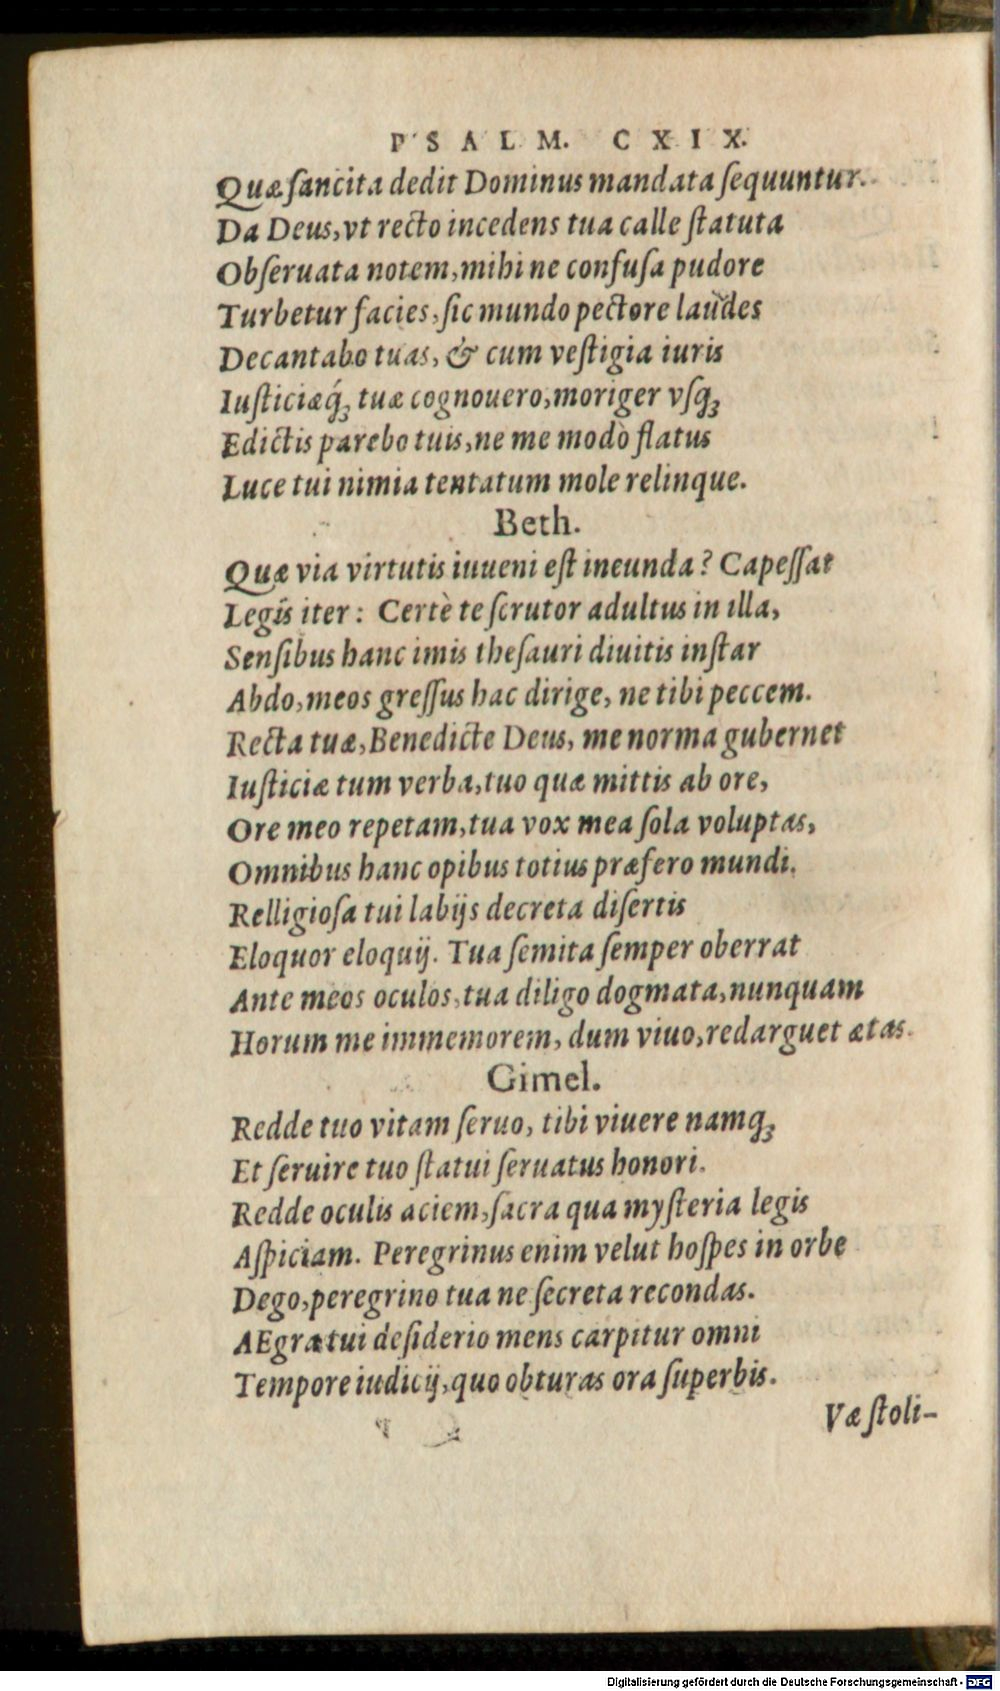 PSALM. CXIX.
Quæ ſancita dedit Dominus mandata ſequuntur.
Da Deus, vt recto incedens tua calle ſtatuta
Obſeruata notem, mihi ne confuſa pudore
Turbetur facies, ſic mundo pectore laudes
Decantabo tuas, & cum veſtigia iuris
Iuſticiæq́ꝫ tuæ cognouero, moriger vſqꝫ
Edictis parebo tuis, ne me modò flatus
Luce tui nimia tentatum mole relinque.
Beth.
Quæ via virtutis iuueni eſt ineunda? Capeſſat
Legis iter: Certè te ſcrutor adultus in illa,
Senſibus hanc imis theſauri diuitis inſtar
Abdo, meos greſſus hac dirige, ne tibi peccem.
Recta tuæ, Benedicte Deus, me norma gubernet
Iuſticiæ tum verba, tuo quæ mittis ab ore,
Ore meo repetam, tua vox mea ſola voluptas,
Omnibus hanc opibus totius præfero mundi.
Relligioſa tui labijs decreta diſertis
Eloquor eloquij. Tua ſemita ſemper oberrat
Ante meos oculos, tua diligo dogmata, nunquam
Horum me immemorem, dum viuo, redarguet ætas.
Gimel.
Redde tuo vitam ſeruo, tibi viuere namqꝫ
Et ſeruire tuo ſtatui ſeruatus honori.
Redde oculis aciem, ſacra qua myſteria legis
Aſpiciam. Peregrinus enim velut hoſpes in orbe
Dego, peregrino tua ne ſecreta recondas.
AEgrætui deſiderio mens carpitur omni
Tempore iudicij, quo obturas ora ſuperbis.
Væ ſtoli-
Digitalisierung gefördert durch die Deutsche Forschungsgemeinschaft - DFG